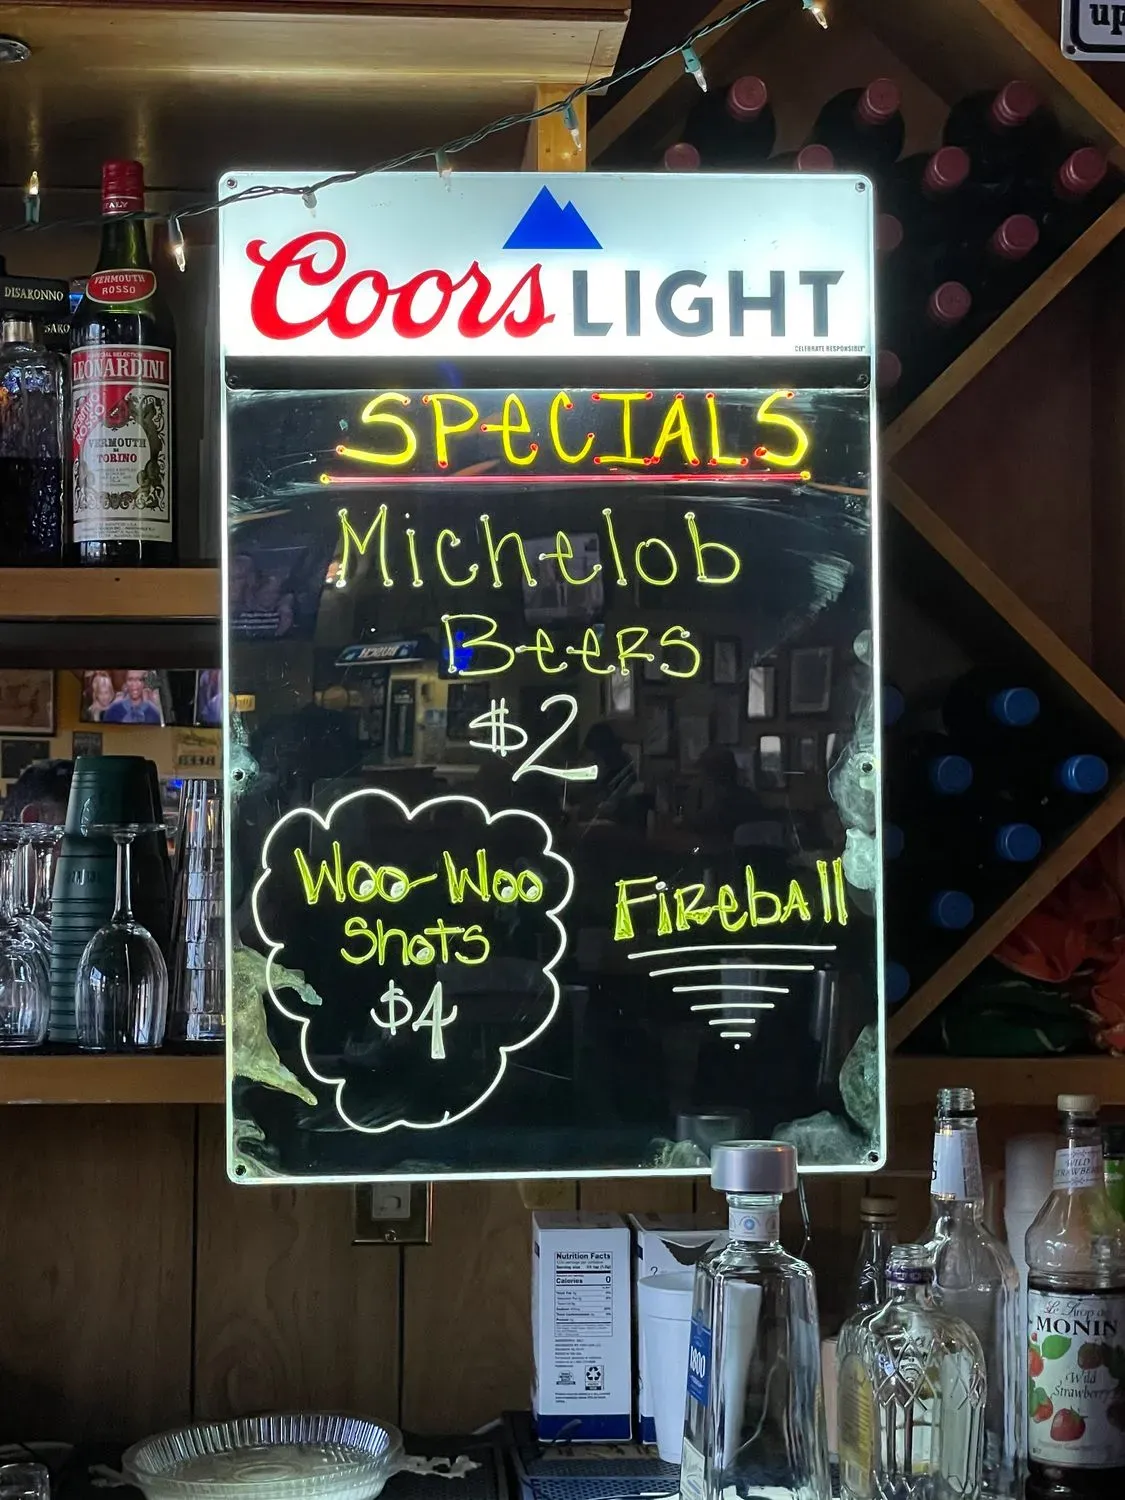 up
Coors LIGHT
CELEBRATE RESPONSIBLY
SPeCIALS
Michelob
Beers
$2
Woo-Woo
Shots
$4
FiRebAll
ITALY
VERMOUTH
ROSSO
DISARONNO
SPECIAL SELECTION
LEONARDINI
VERMOUTH
DI
TORINO
BEER
Nutrition Facts
Calories 0
1800
WILD
STRAWBERRY
MONIN
Wild
Strawberry